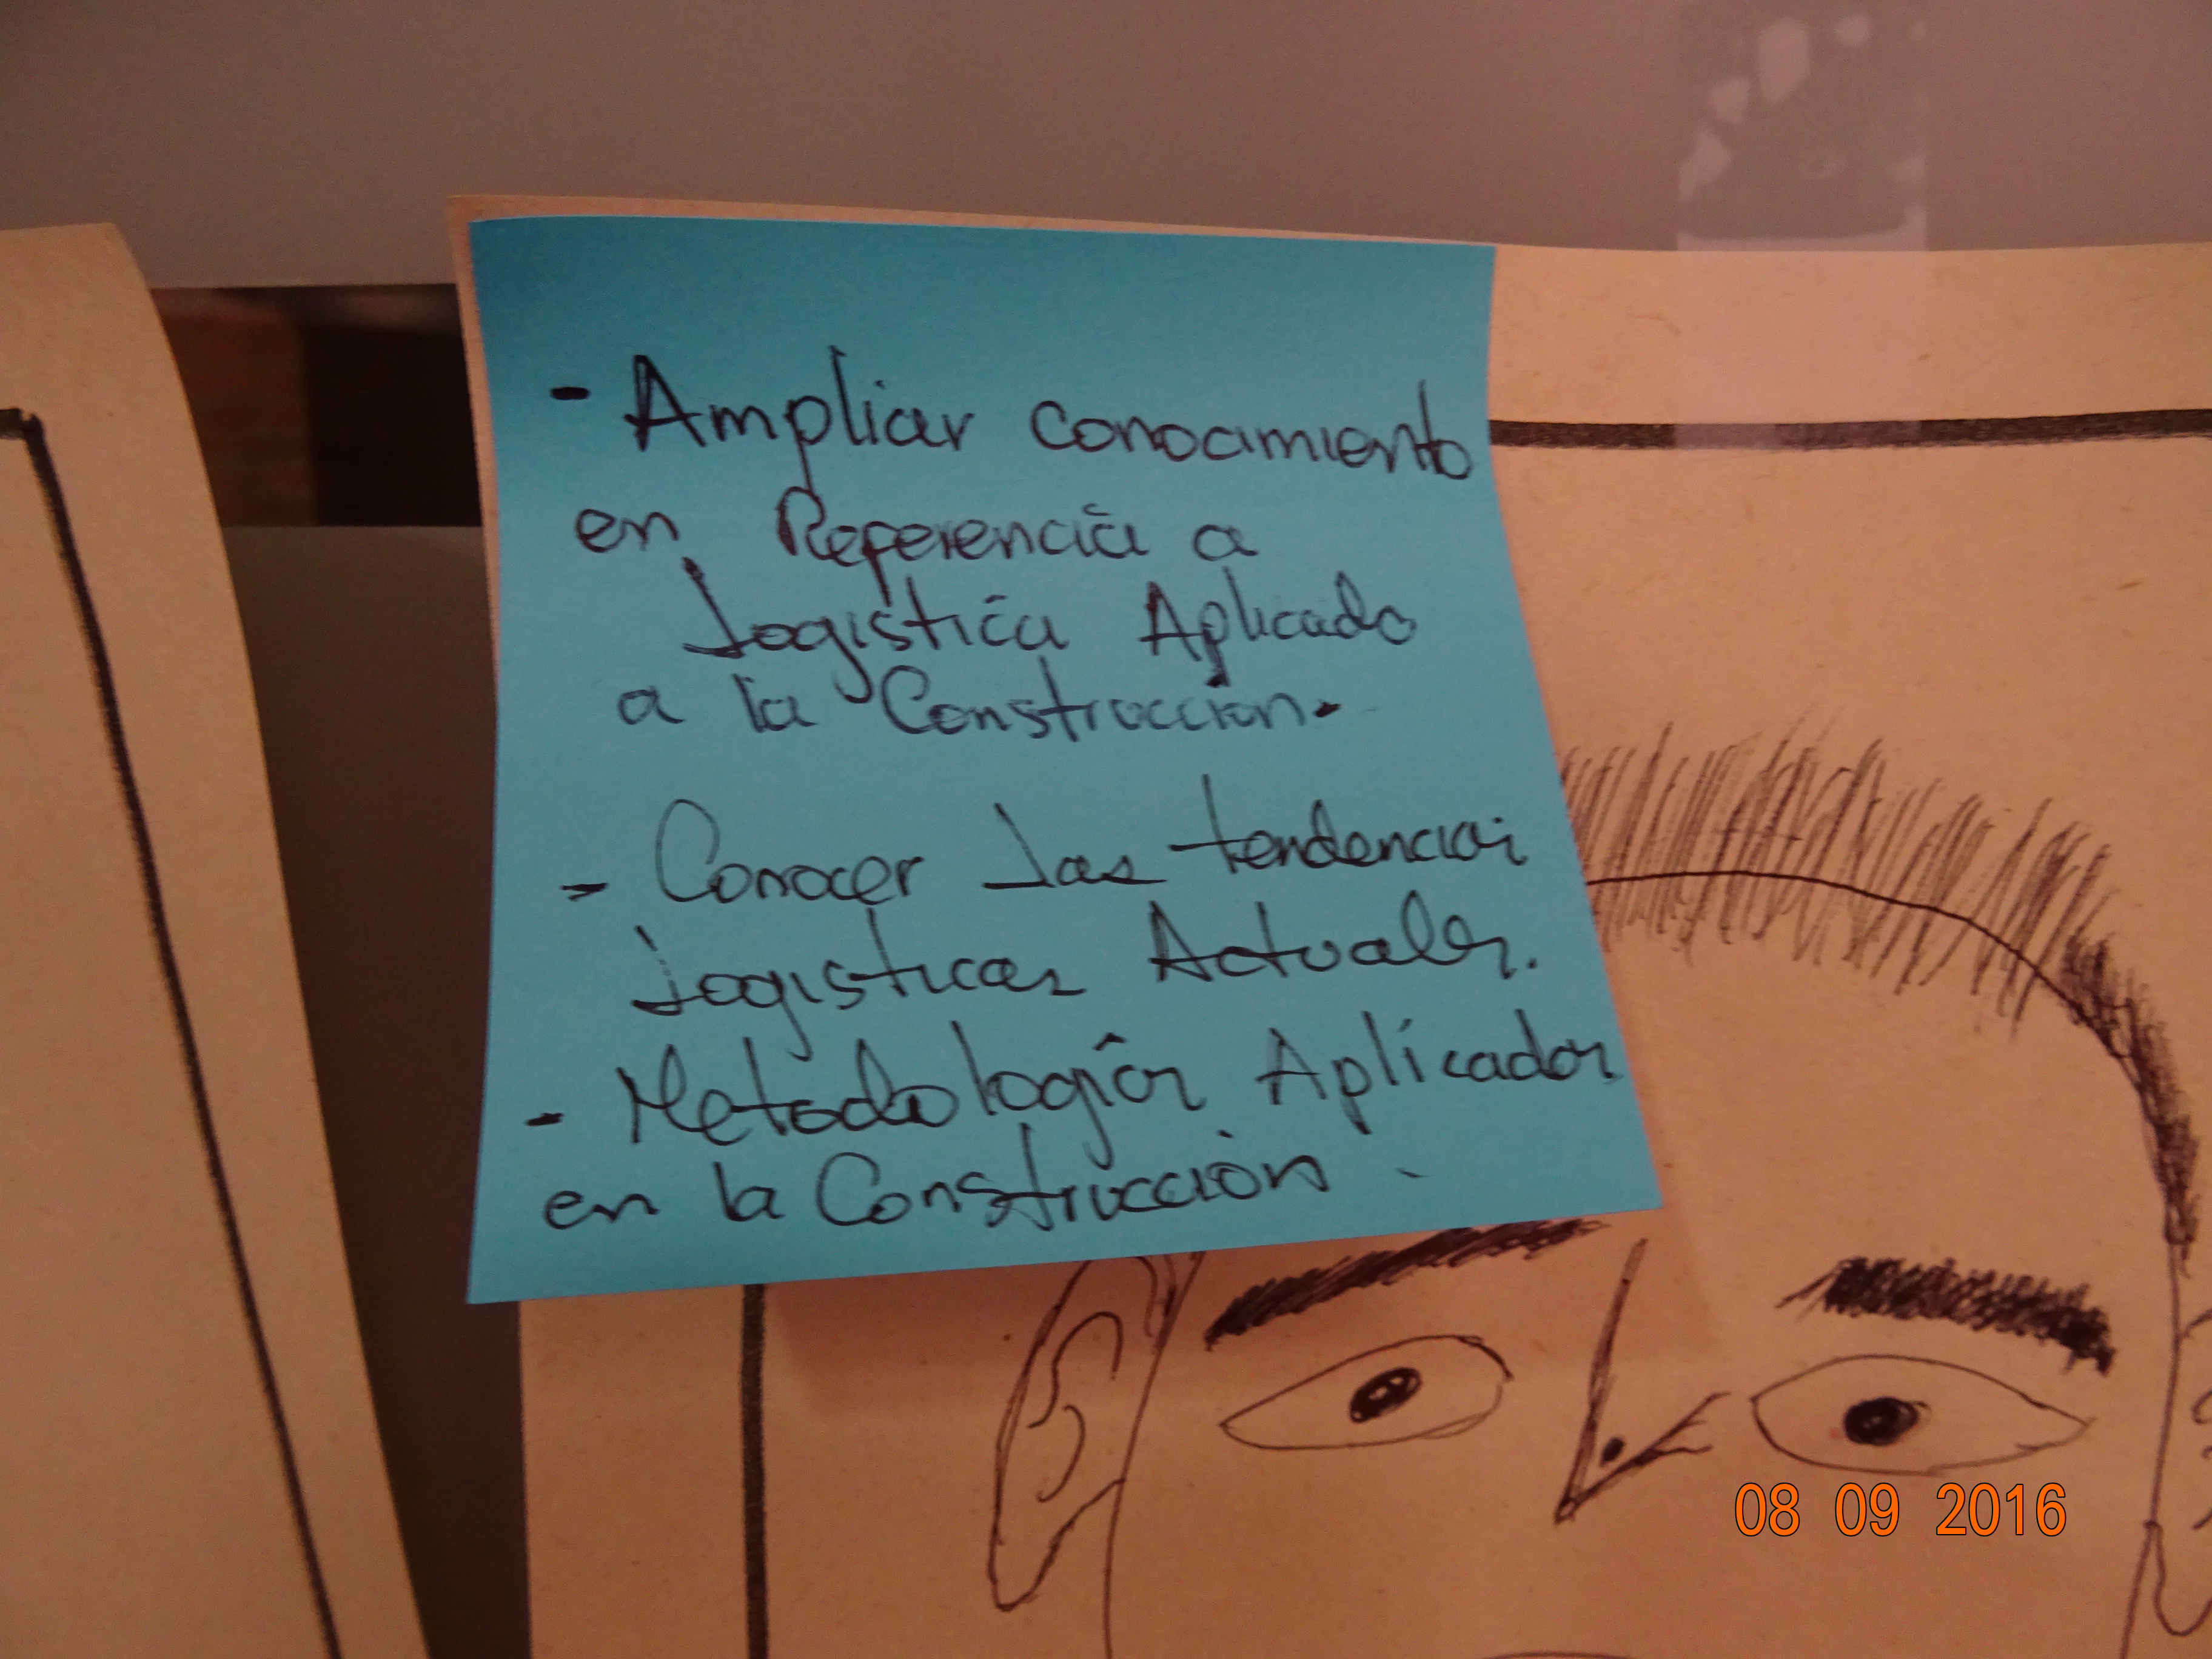 - Ampliar conocimiento
en Referencia a
Logística Aplicado
a la Construccion.
- Conocer las tendencias
Logisticas Actuales.
- Metodologías Aplicados
en la Construcción.
08 09 2016